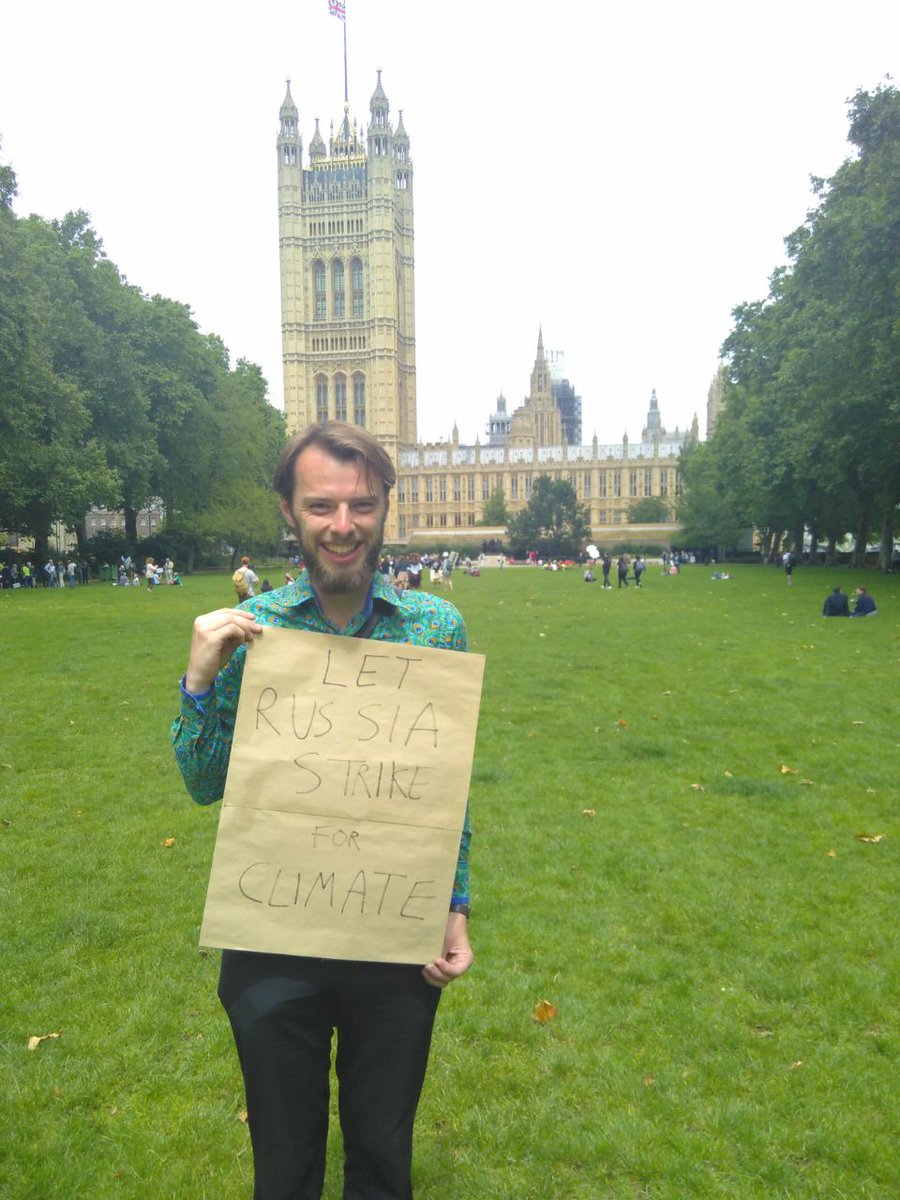 LET
RUSSIA
STRIKE
FOR
CLIMATE